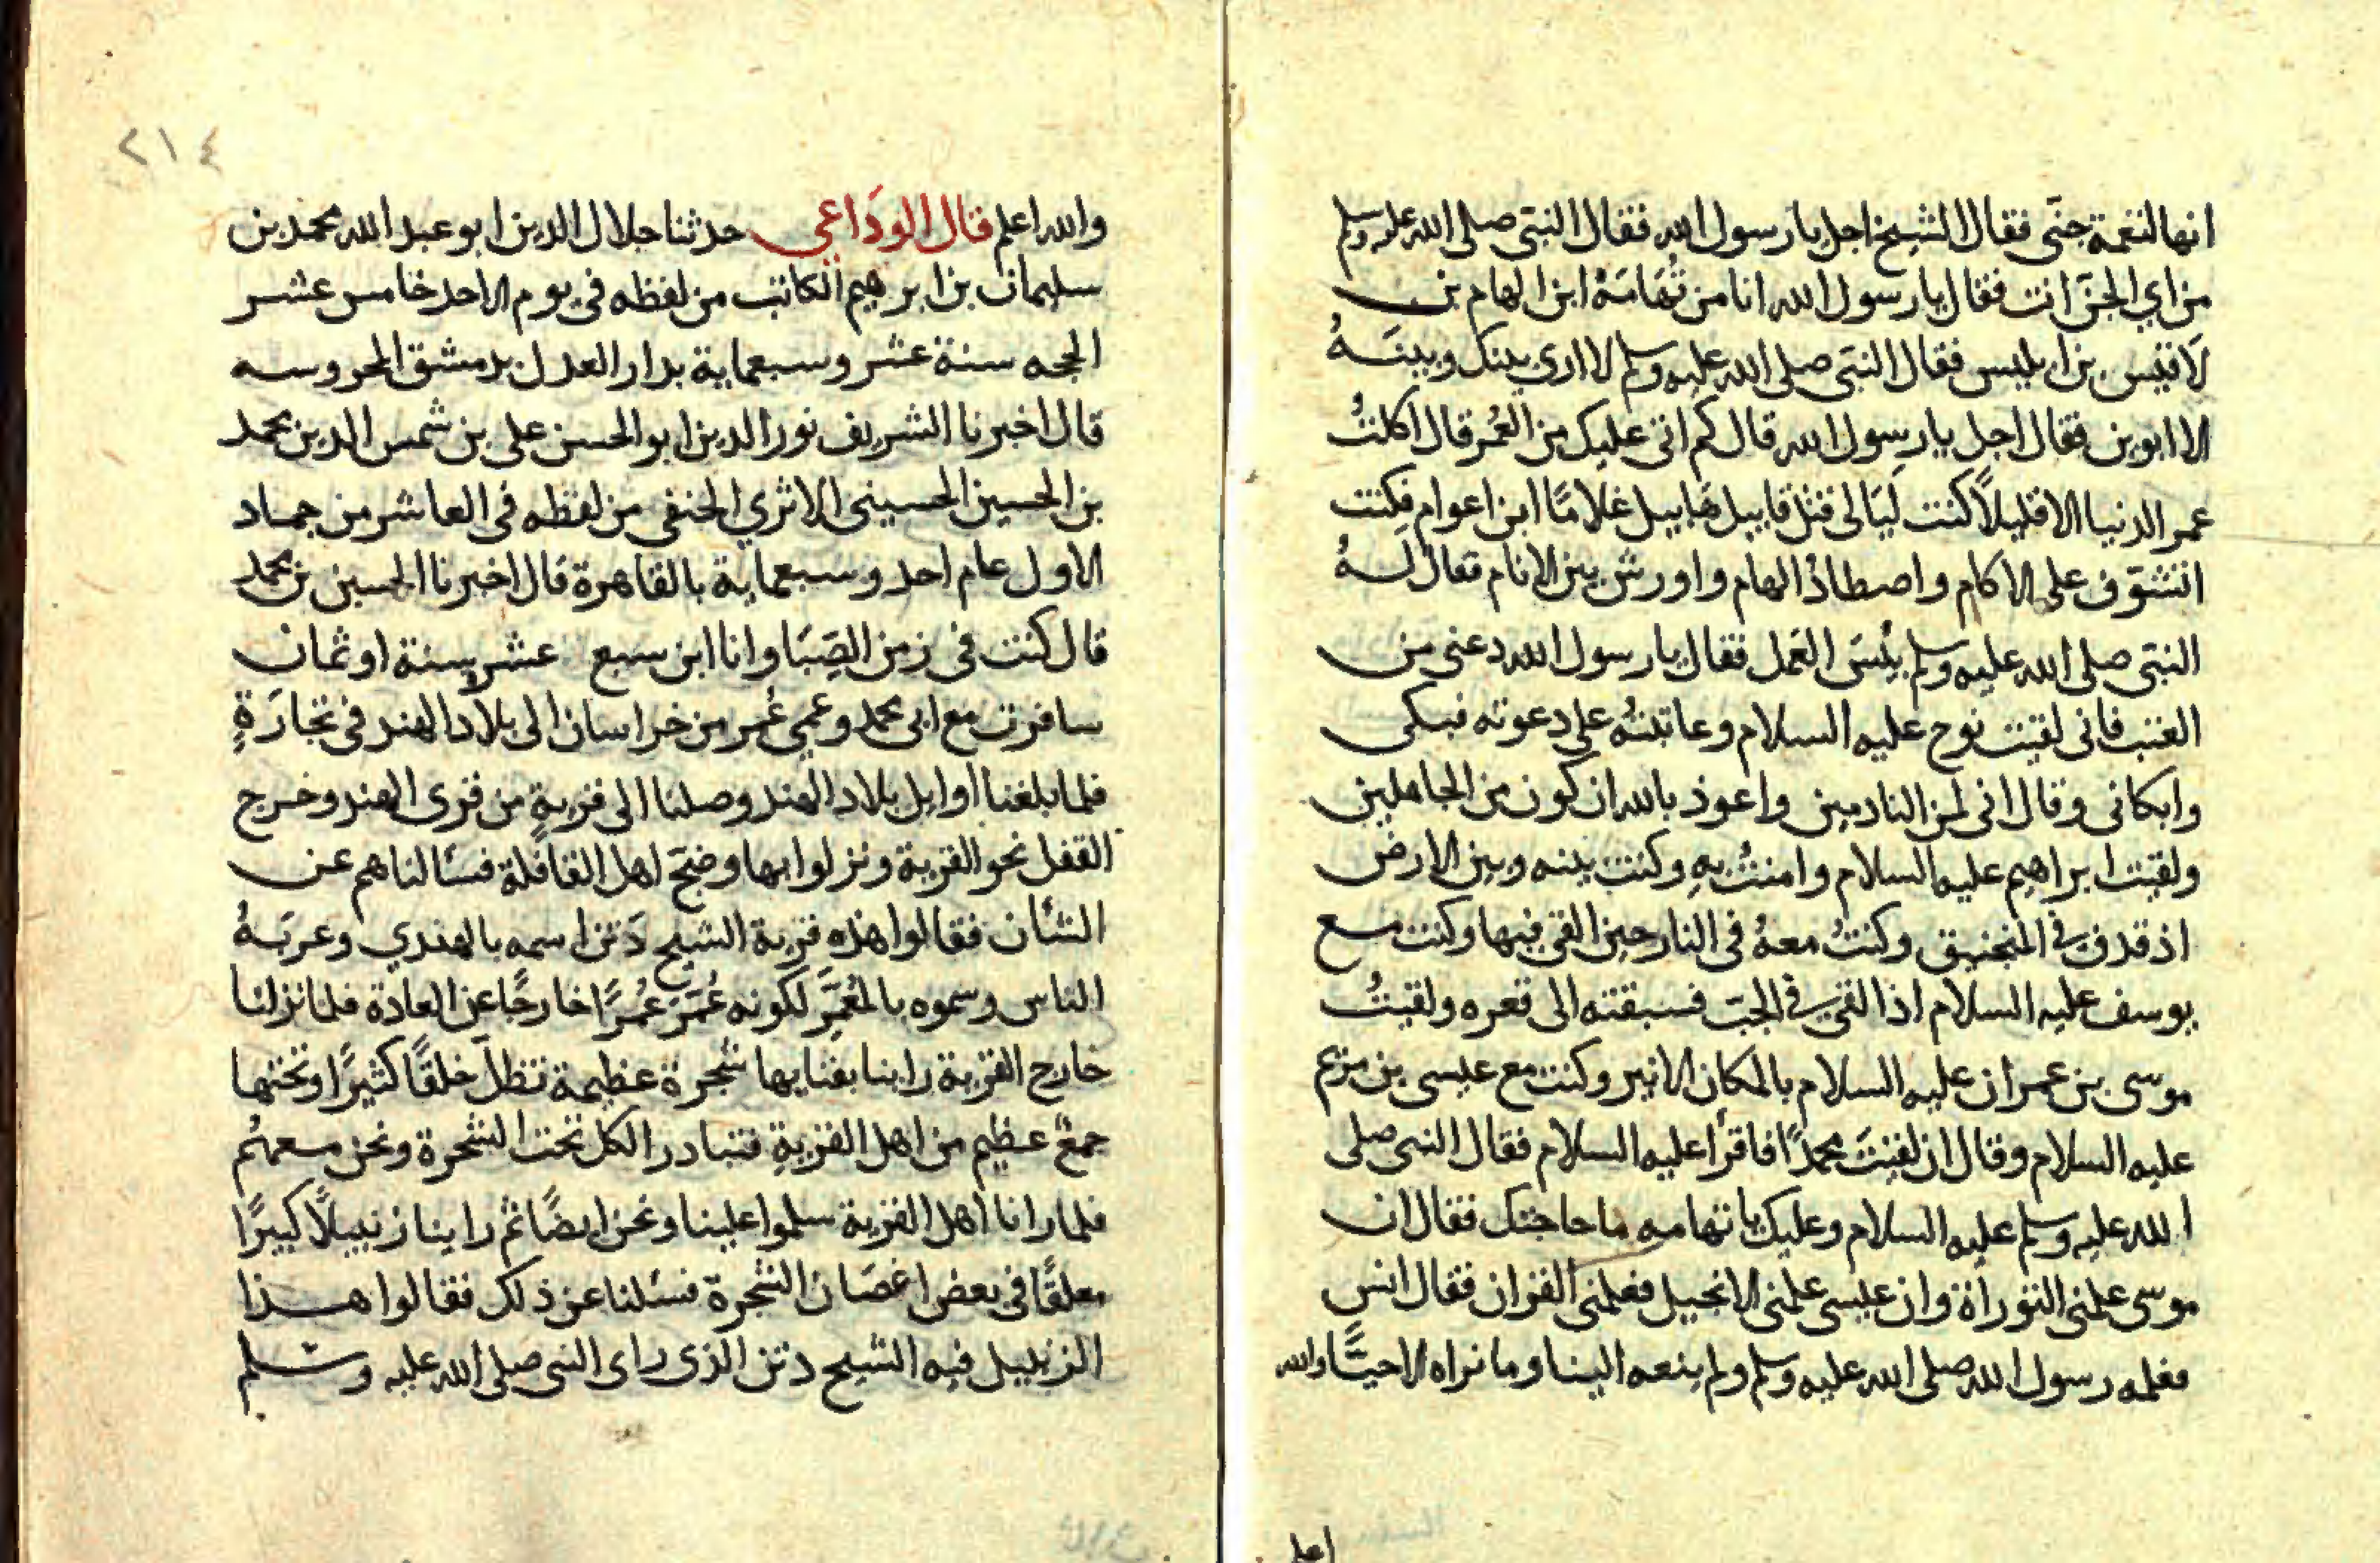 انها لنغمة جنّى فقال الشيخ اجل يا رسول الله فقال النبّى صلى الله عليه وسلم
من اي الجنّ انت فقال يا رسول الله انا من تُهَامَهُ ابن الهام بن
لَاقيس بن ابليس فقال النبّى صلى الله عليه وسلم لا ارى بينك وبينَــهُ
الا ابوين فقال اجل يا رسول الله قال كم اتى عليك من العُمر قال اكلتُ
عمر الدنيا الا قليلاً كنت لَيَالى قتل قابيل هَابيل غلامًا ابن اعوام فكنت
اتشوّف على الاكام واصطاذُ الهام واورش بين الانام فقال لــهُ
النبّى صلى الله عليه وسلم بئسَ العَمل فقال يا رسول الله دعنى من
العتب فانى لقيت نوح عليه السلام وعاتبتهُ على دعوته فبكى
وابكانى وقال انى لمن النادمين واعوذ بالله ان كون من الجاهلين
ولقيت ابراهيم عليه السلام وامنتُ بهِ وكنت بينه وبين الارض
اذ قدف فى المنجنيق وكنتُ معهُ فى النار حين القى فيها وكنت مــع
يوسف عليه السلام اذا لقى فى الجبّ فسبقته الى قعره ولقيتُ
موسى بن عمران عليه السلام بالمكان الاثير وكنت مع عيسى بن مريم
عليه السلام وقال ان لقيتَ محمدًا فاقرأ عليه السلام فقال النبى صلى
الله عليه وسلم عليه السلام وعليك يا تهامه ما حاجتك فقال ان
موسى علمنى التوراة وان عيسى علمنى الانجيل فعلمنى القران فقال انس
فعلمه رسول الله صلى الله عليه وسلم ولم ينعه الينا وما نراه الا حيًّا والله
اعلم
٢١٤
والله اعلم قال الودَاعي حدثنا جلال الدين ابو عبد الله محمد بن
سليمان بن ابرهيم الكاتب من لفظه فى يوم الاحد خامس عشر
الحجه سنة عشر وسبعماية بدار العدل بدمشق المحروسه
قال اخبرنا الشريف نور الدين ابو الحسن على بن شمس الدين محمد
بن الحسين الحسينى الاثري الحنفى من لفظه فى العاشر من جمـاد
الاول عام احد وسبعماية بالقاهرة قال اخبرنا الحسين بن محمد
قال كنت فى زمن الصِبَا وانا ابن سبع عشر سنة او ثمان
سافرت مع ابى محمد وعمي عُمر من خراسان الى بلاد الهند فى تجارَةٍ
فلما بلغنا اوايل بلاد الهند وصلنا الى قريةٍ من قرى الهند وخرج
القفل نحو القرية ونزلوا بها وضجّ اهل القافلة فسألناهم عن
الشأن فقالوا هذه قرية الشيخ دَتن اسمه بالهندي وعربَــهُ
الناس وسموه بالمُعَمَّر لكونه عُمّرَ عُمرًا خارجًا عن العادة فلما نزلنا
خارج القرية راينا بفنايها شجرة عظيمة تظلّ خلقًا كثيرًا وتحتها
جمعٌ عظيم من اهل القريةِ فتبادر الكل تحت الشجرة ونحن معهُم
فلما رانا اهل القرية سلموا علينا ونحن ايضًا ثم راينا زنبيلاً كبيرًا
معلقًا فى بعض اغصَان الشجرة فسئلنا عن ذلك فقالوا هــذا
الزنبيل فيه الشيخ دتن الذى راى النبى صلى الله عليه وسلم